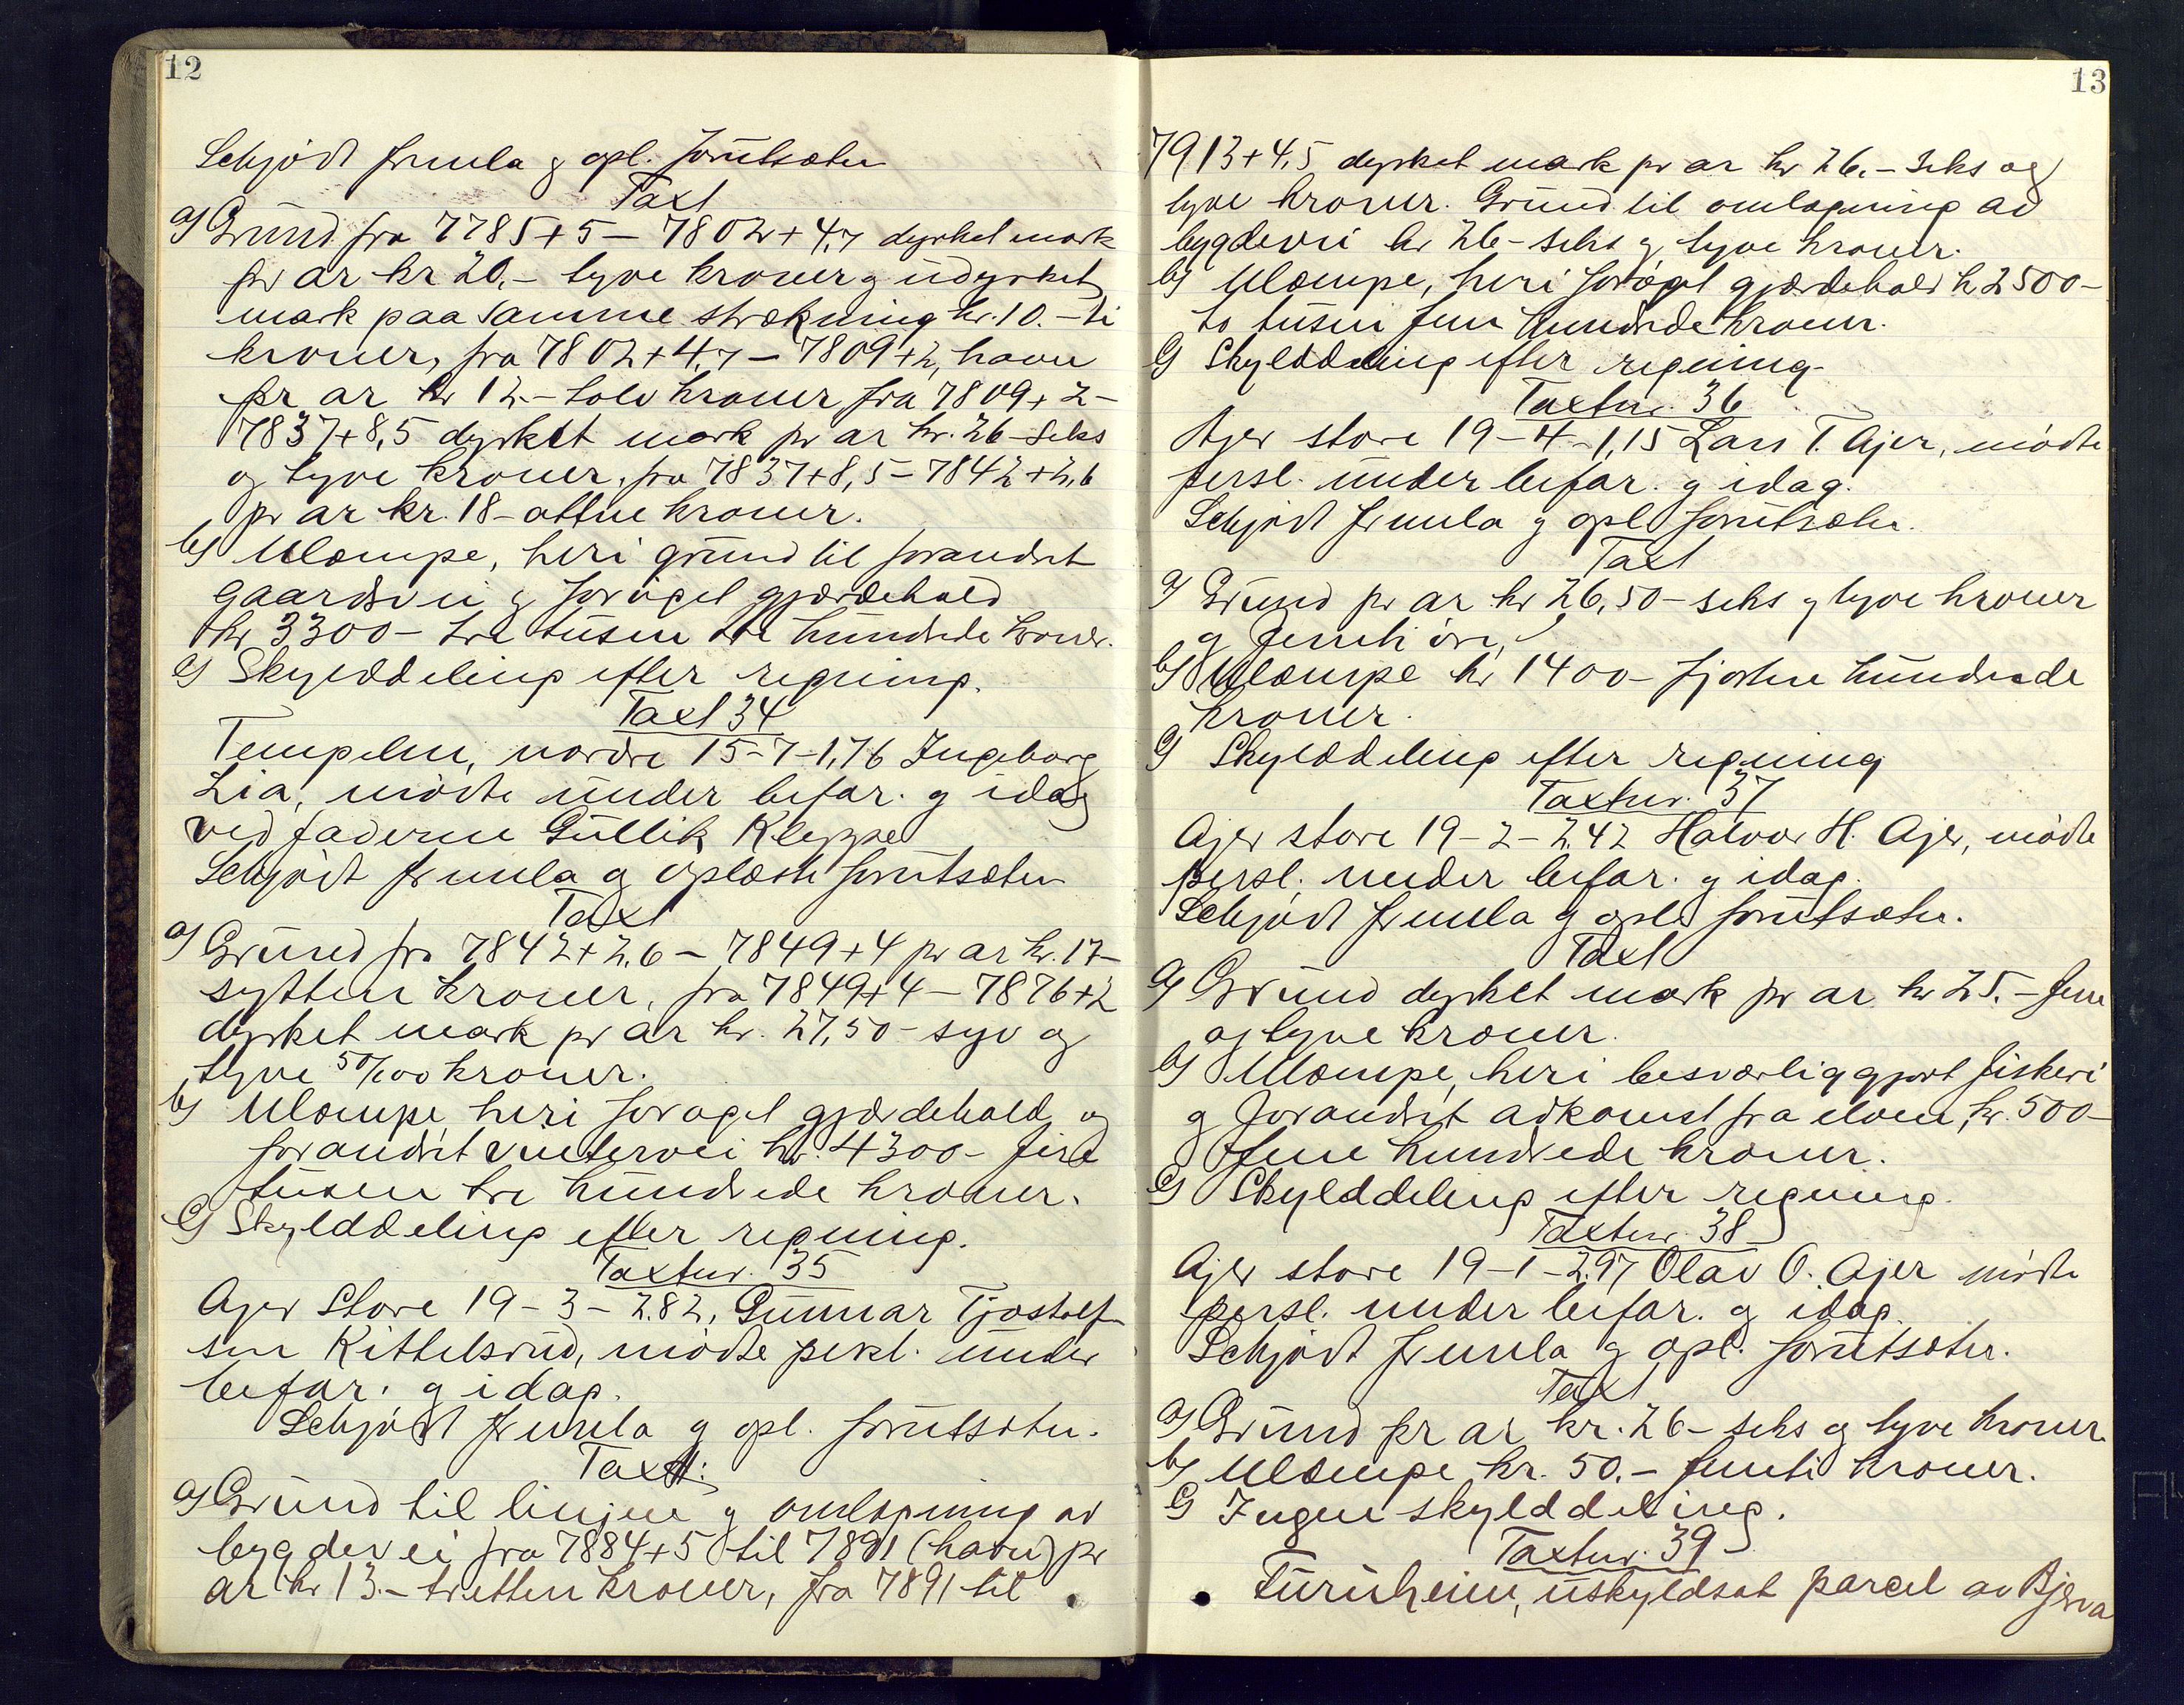 12
Schjødt fremla g opl. forutsætn
Taxt
a) Grund fra 7785+5 – 7802+4,7 dyrket mark
pr ar kr 20,- tyve kroner g udyrket
mark paa samme strækning kr. 10.- ti
kroner, fra 7802+4,7 – 7809+2, havn
pr ar kr 12.- tolv kroner fra 7809+2-
7837+8,5 dyrket mark pr ar kr. 26 - seks
og tyve kroner, fra 7837+8,5 – 7842+2,6
pr ar kr. 18 - atten kroner.
b) Ulæmpe, heri grund til forandret
gaardsvei g forøget gjærdehold
kr 3300 - tre tusen tre hundrede kroner.
c) Skylddeling efter regning.
Taxt 34
Tempelen, nordre 15-7-1,76 Ingeborg
Lia, mødte under befar. g idag
ved faderen Gullik Kleppe
Schjødt fremla g oplæste forutsætn
Taxt
a) Grund fra 7842+2,6 – 7849+4 pr ar kr. 17-
sytten kroner, fra 7849+4 – 7876+2
dyrket mark pr ar kr. 27,50 - syv og
tyve 50/100 kroner.
b) Ulæmpe heri forøget gjærdehold og
forandret vintervei kr. 4300 - fire
tusen tre hundrede kroner.
c) Skylddeling efter regning.
Taxtnr. 35
Ajer Store 19 - 3 - 2.82, Gunnar Tjostolf-
sen Kittelsrud, mødte persl. under
befar. g idag.
Schjødt fremla g opl. forutsætn.
Taxt:
a) Grund til linjen g omlægning av
bygdevei fra 7884+5 til 7891 (havn) pr
ar kr 13.- tretten kroner, fra 7891 til
13
7913+4,5 dyrket mark pr ar kr 26.- seks og
tyve kroner. Grund til omlægning av
bygdevei kr 26 - seks g tyve kroner.
b) Ulæmpe, heri forøget gjærdehold kr 2500 -
to tusen fem hundrede kroner.
c) Skylddeling efter regning.
Taxtnr. 36
Ajer store 19 - 4 - 1,15 Lars T. Ajer, mødte
persl. under befar. g idag.
Schjødt fremla g opl forutsætn.
Taxt
a) Grund pr ar kr 26,50 - seks g tyve kroner
g femti øre,
b) Ulæmpe kr 1400 - fjorten hundrede
kroner.
c) Skylddeling efter regning
Taxtnr. 37
Ajer store 19 - 2 - 2,42 Halvor H. Ajer, mødte
persl. under befar. g idag.
Schjødt fremla g opl forutsætn.
Taxt
a) Grund dyrket mark pr ar kr 25.- fem
og tyve kroner.
b) Ulæmpe, heri besværliggjort fiskeri
g forandret adkomst fra elven, kr. 500 -
fem hundrede kroner.
c) Skylddeling efter regning.
Taxtnr. 38
Ajer store 19 - 1 - 2,97 Olav O. Ajer mødte
persl. under befar. g idag.
Schjødt fremla g opl. forutsætn.
Taxt
a) Grund pr ar kr. 26 - seks og tyve kroner.
b) Ulæmpe kr. 50.- femti kroner.
c) Ingen skylddeling.
Taxtnr. 39
Furuheim, uskyldsat parcel av Bjerva